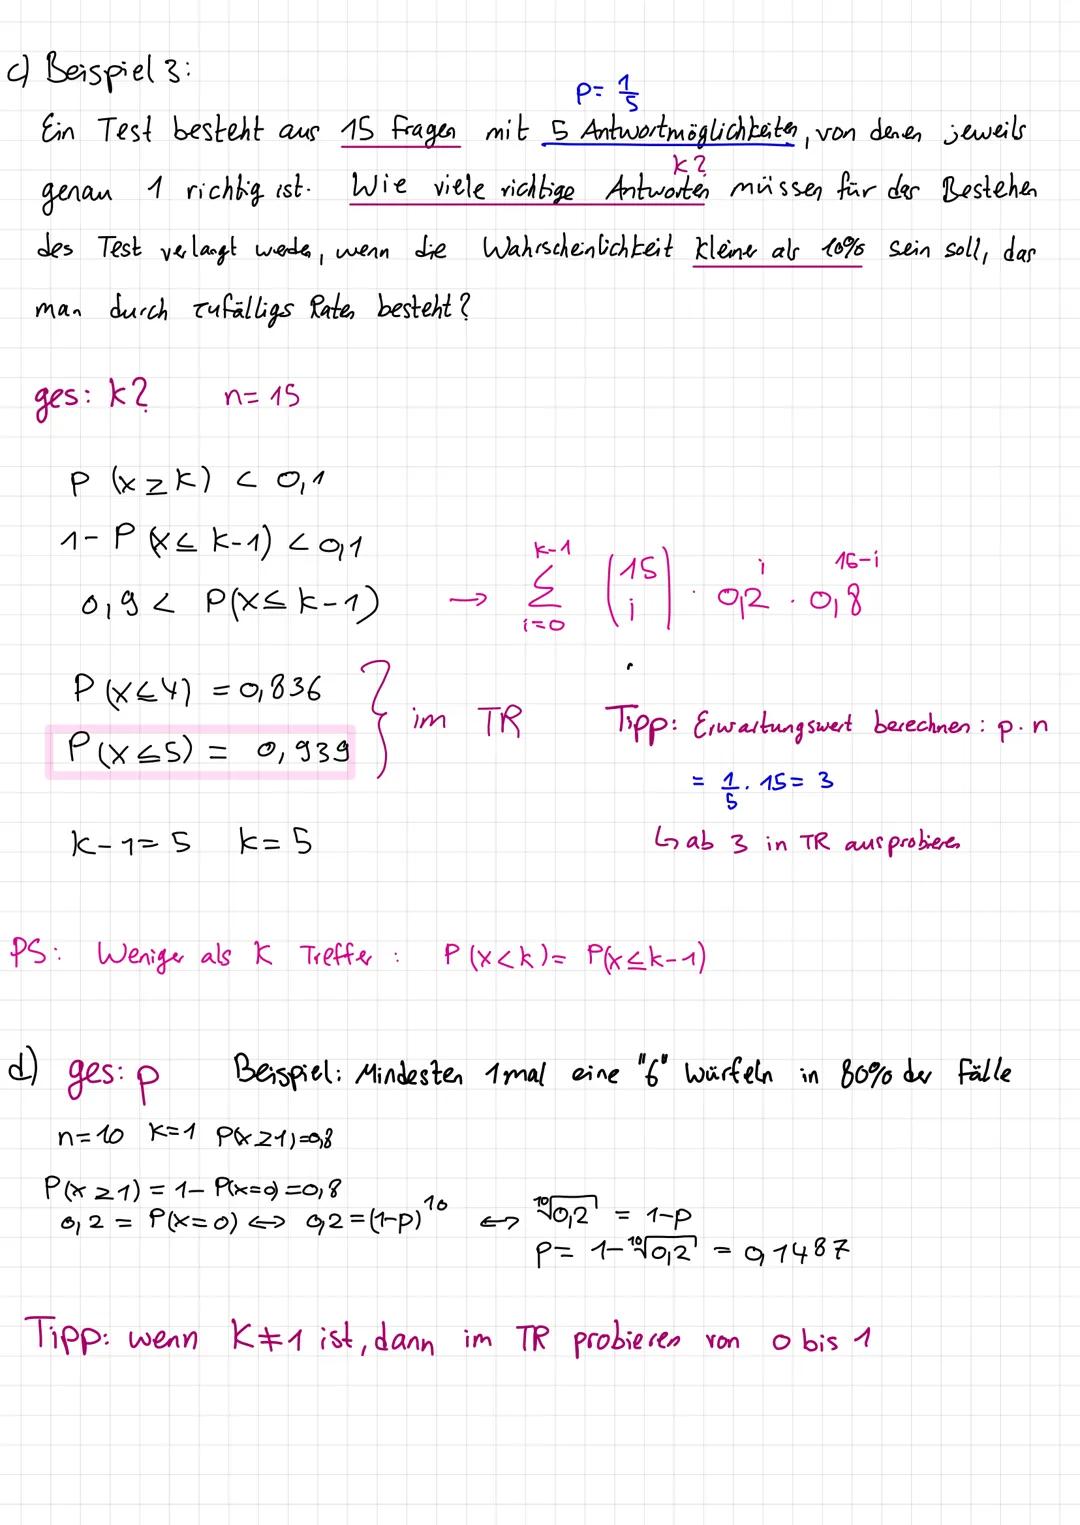 c) Beispiel 3:
p= 1/5
Ein Test besteht aus 15 Fragen mit 5 Antwortmöglichkeiten, von denen jeweils
k?
genau 1 richtig ist. Wie viele richtige Antworten müssen für das Bestehen
des Test verlangt werde, wenn die Wahrscheinlichkeit kleine als 10% sein soll, das
man durch zufälligs Raten besteht?
ges: k? n= 15
P (x ≥ k) < 0,1
1- P (x ≤ k-1) < 0,1
0,9 < P(x ≤ k-1) → ∑_{i=0}^{k-1} (15 i) · 0,2^i · 0,8^{15-i}
P (x ≤ 4) = 0,836
P(x ≤ 5) = 0,939
} im TR
Tipp: Erwartungswert berechnen: p·n
= 1/5 · 15 = 3
↳ ab 3 in TR ausprobieren
k-1= 5 k= 5
PS: Weniger als K Treffer : P(x<k)= P(x≤k-1)
d) ges: p Beispiel: Mindesten 1mal eine "6" würfeln in 80% der Fälle
n= 10 k=1 P(x≥1)=0,8
P(x ≥1) = 1- P(x=0) =0,8
0,2 = P(x=0) ⟺ 0,2=(1-p)^10 ⟺ ¹⁰√0,2 = 1-p
p= 1-¹⁰√0,2 = 0,1487
Tipp: wenn K≠1 ist, dann im TR probieren von 0 bis 1